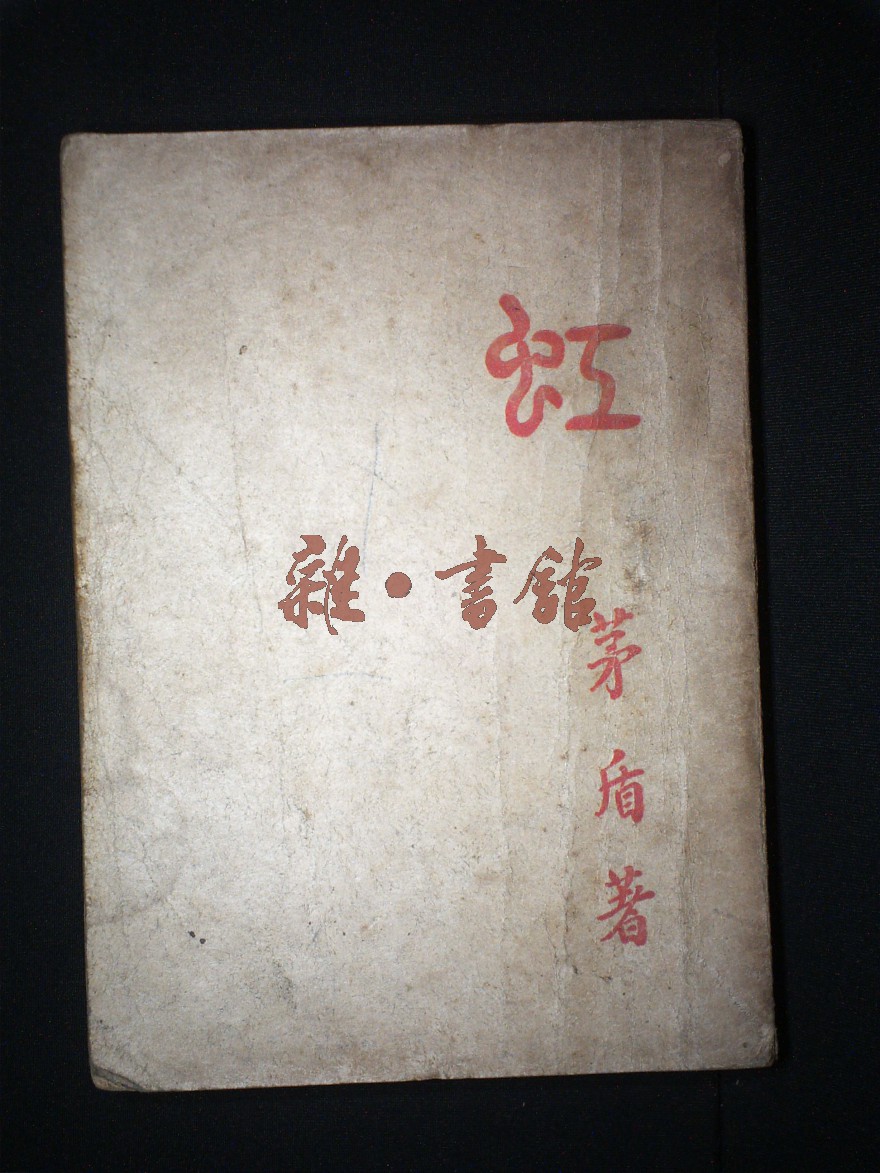 虹
雜·書館
茅盾著